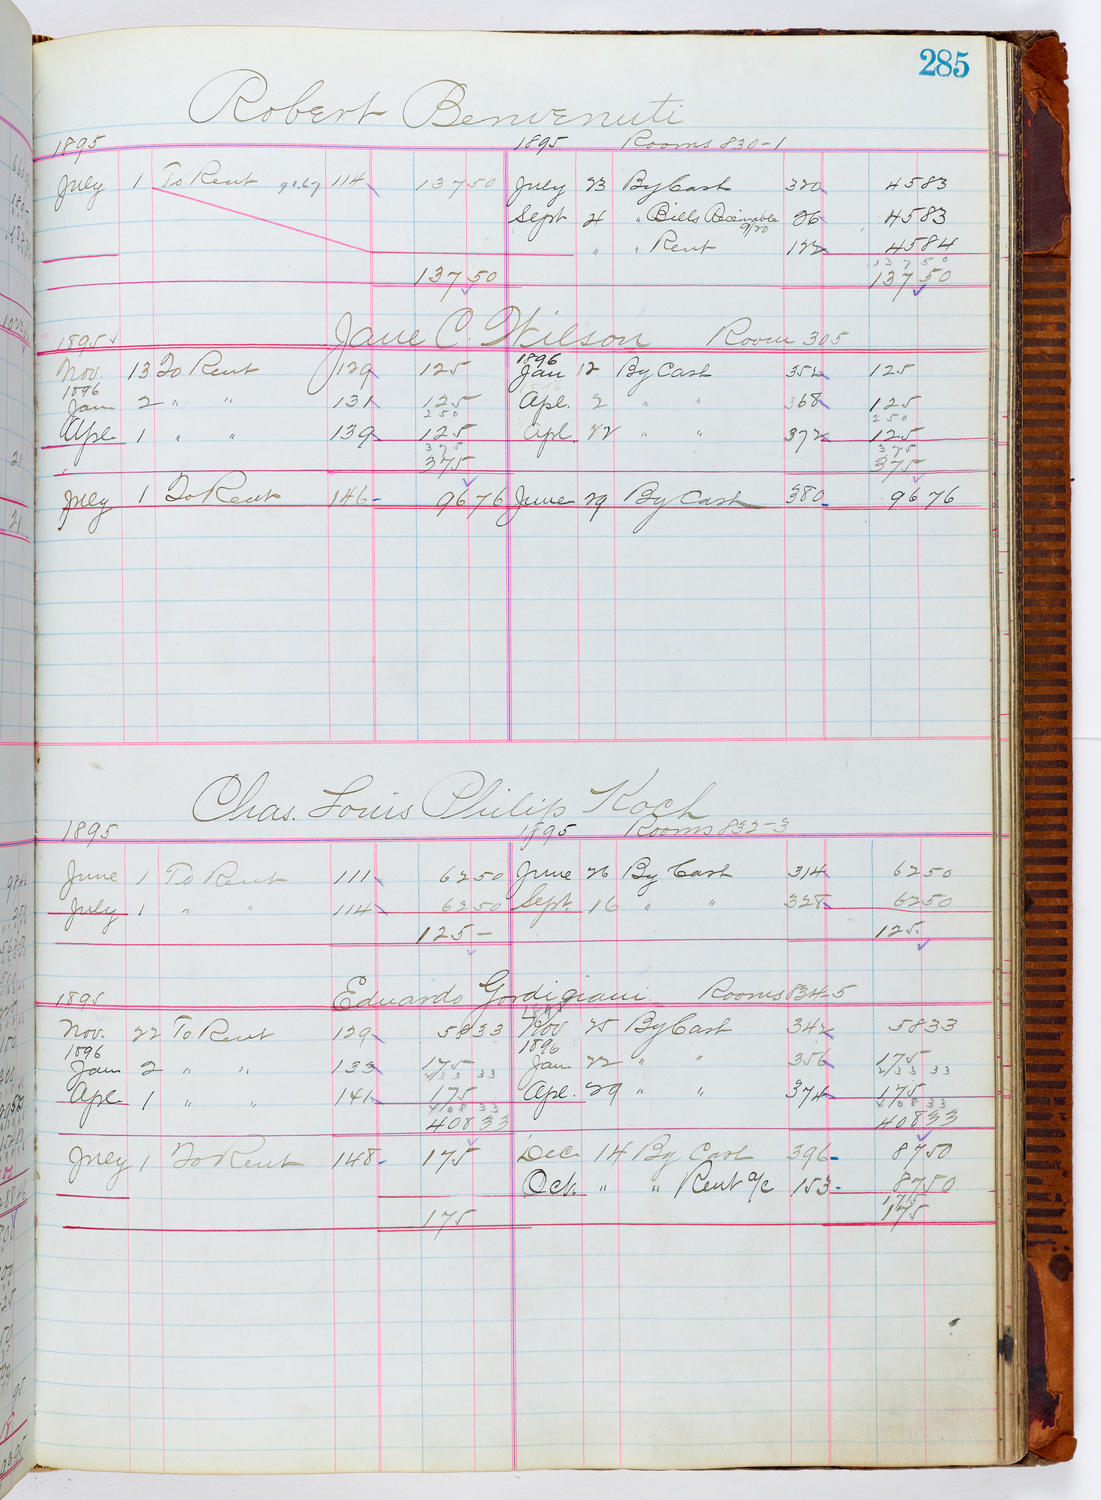 285
Robert Benvenuti
1895 1895 Rooms 830-1
July 1 To Rent 91.67 114 137 50 July 23 By Cash 320 45 83
Sept 4 " Bills Receivable 9/20 26 45 83
" " Rent 122 45 84
137 50
137 50 137 50
1895 Jane C. Wilson Room 305
Nov. 13 To Rent 129 125 1896 Jan 12 By Cash 352 125
1896
Jan 2 " " 131 125 Apl. 2 " " 368 125
250 250
Apl 1 " " 139 125 Apl. 22 " " 372 125
375 375
375 375
July 1 To Rent 146 96 76 June 29 By Cash 380 96 76
Chas. Louis Philip Koch
1895 1895 Rooms 832-3
June 1 To Rent 111 62 50 June 26 By Cash 314 62 50
July 1 " " 114 62 50 Sept. 16 " " 328 62 50
125 - 125.
1895 Eduardo Gordigiani Rooms 834-5
Nov. 22 To Rent 129 58 33 Nov 25 By Cash 342 58 33
1896 1896
Jan 2 " " 133 175 Jan 22 " " 356 175
233 33 233 33
Apl 1 " " 141 175 Apl. 29 " " 374 175
408 33 408 33
408 33 408 33
July 1 To Rent 148 175 Dec 14 By Cash 396 87 50
Oct. " " Rent a/c 153 87 50
175
175 175